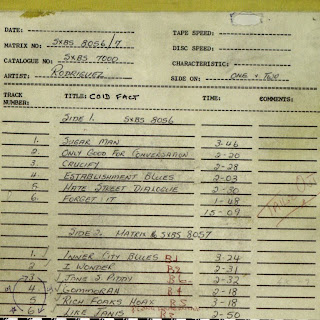 DATE:
TAPE SPEED:
MATRIX NO: SXBS 8056/7
DISC SPEED:
CATALOGUE NO: SXBS 7000
CHARACTERISTIC:
ARTIST: RODRIGUEZ
SIDE ON: ONE & TWO
TRACK NUMBER: TITLE: COLD FACT TIME: COMMENTS:
SIDE 1. SXBS 8056
1. SUGAR MAN 3-46
2. ONLY GOOD FOR CONVERSATION 2-20
3. CRUCIFY 2-28
4. ESTABLISHMENT BLUES 2-03
5. HATE STREET DIALOGUE 2-30
6. FORGET IT 1-48
15-09
SIDE 2. MATRIX SXBS 8057
1. INNER CITY BLUES B1 3-24
2. I WONDER B2 2-31
3. JANE S. PIDDY B6 2-32
4. GOMMORAH B4 2-18
5. RICH FOAKS HOAX B5 3-18
6 LIKE JANIS 2-50